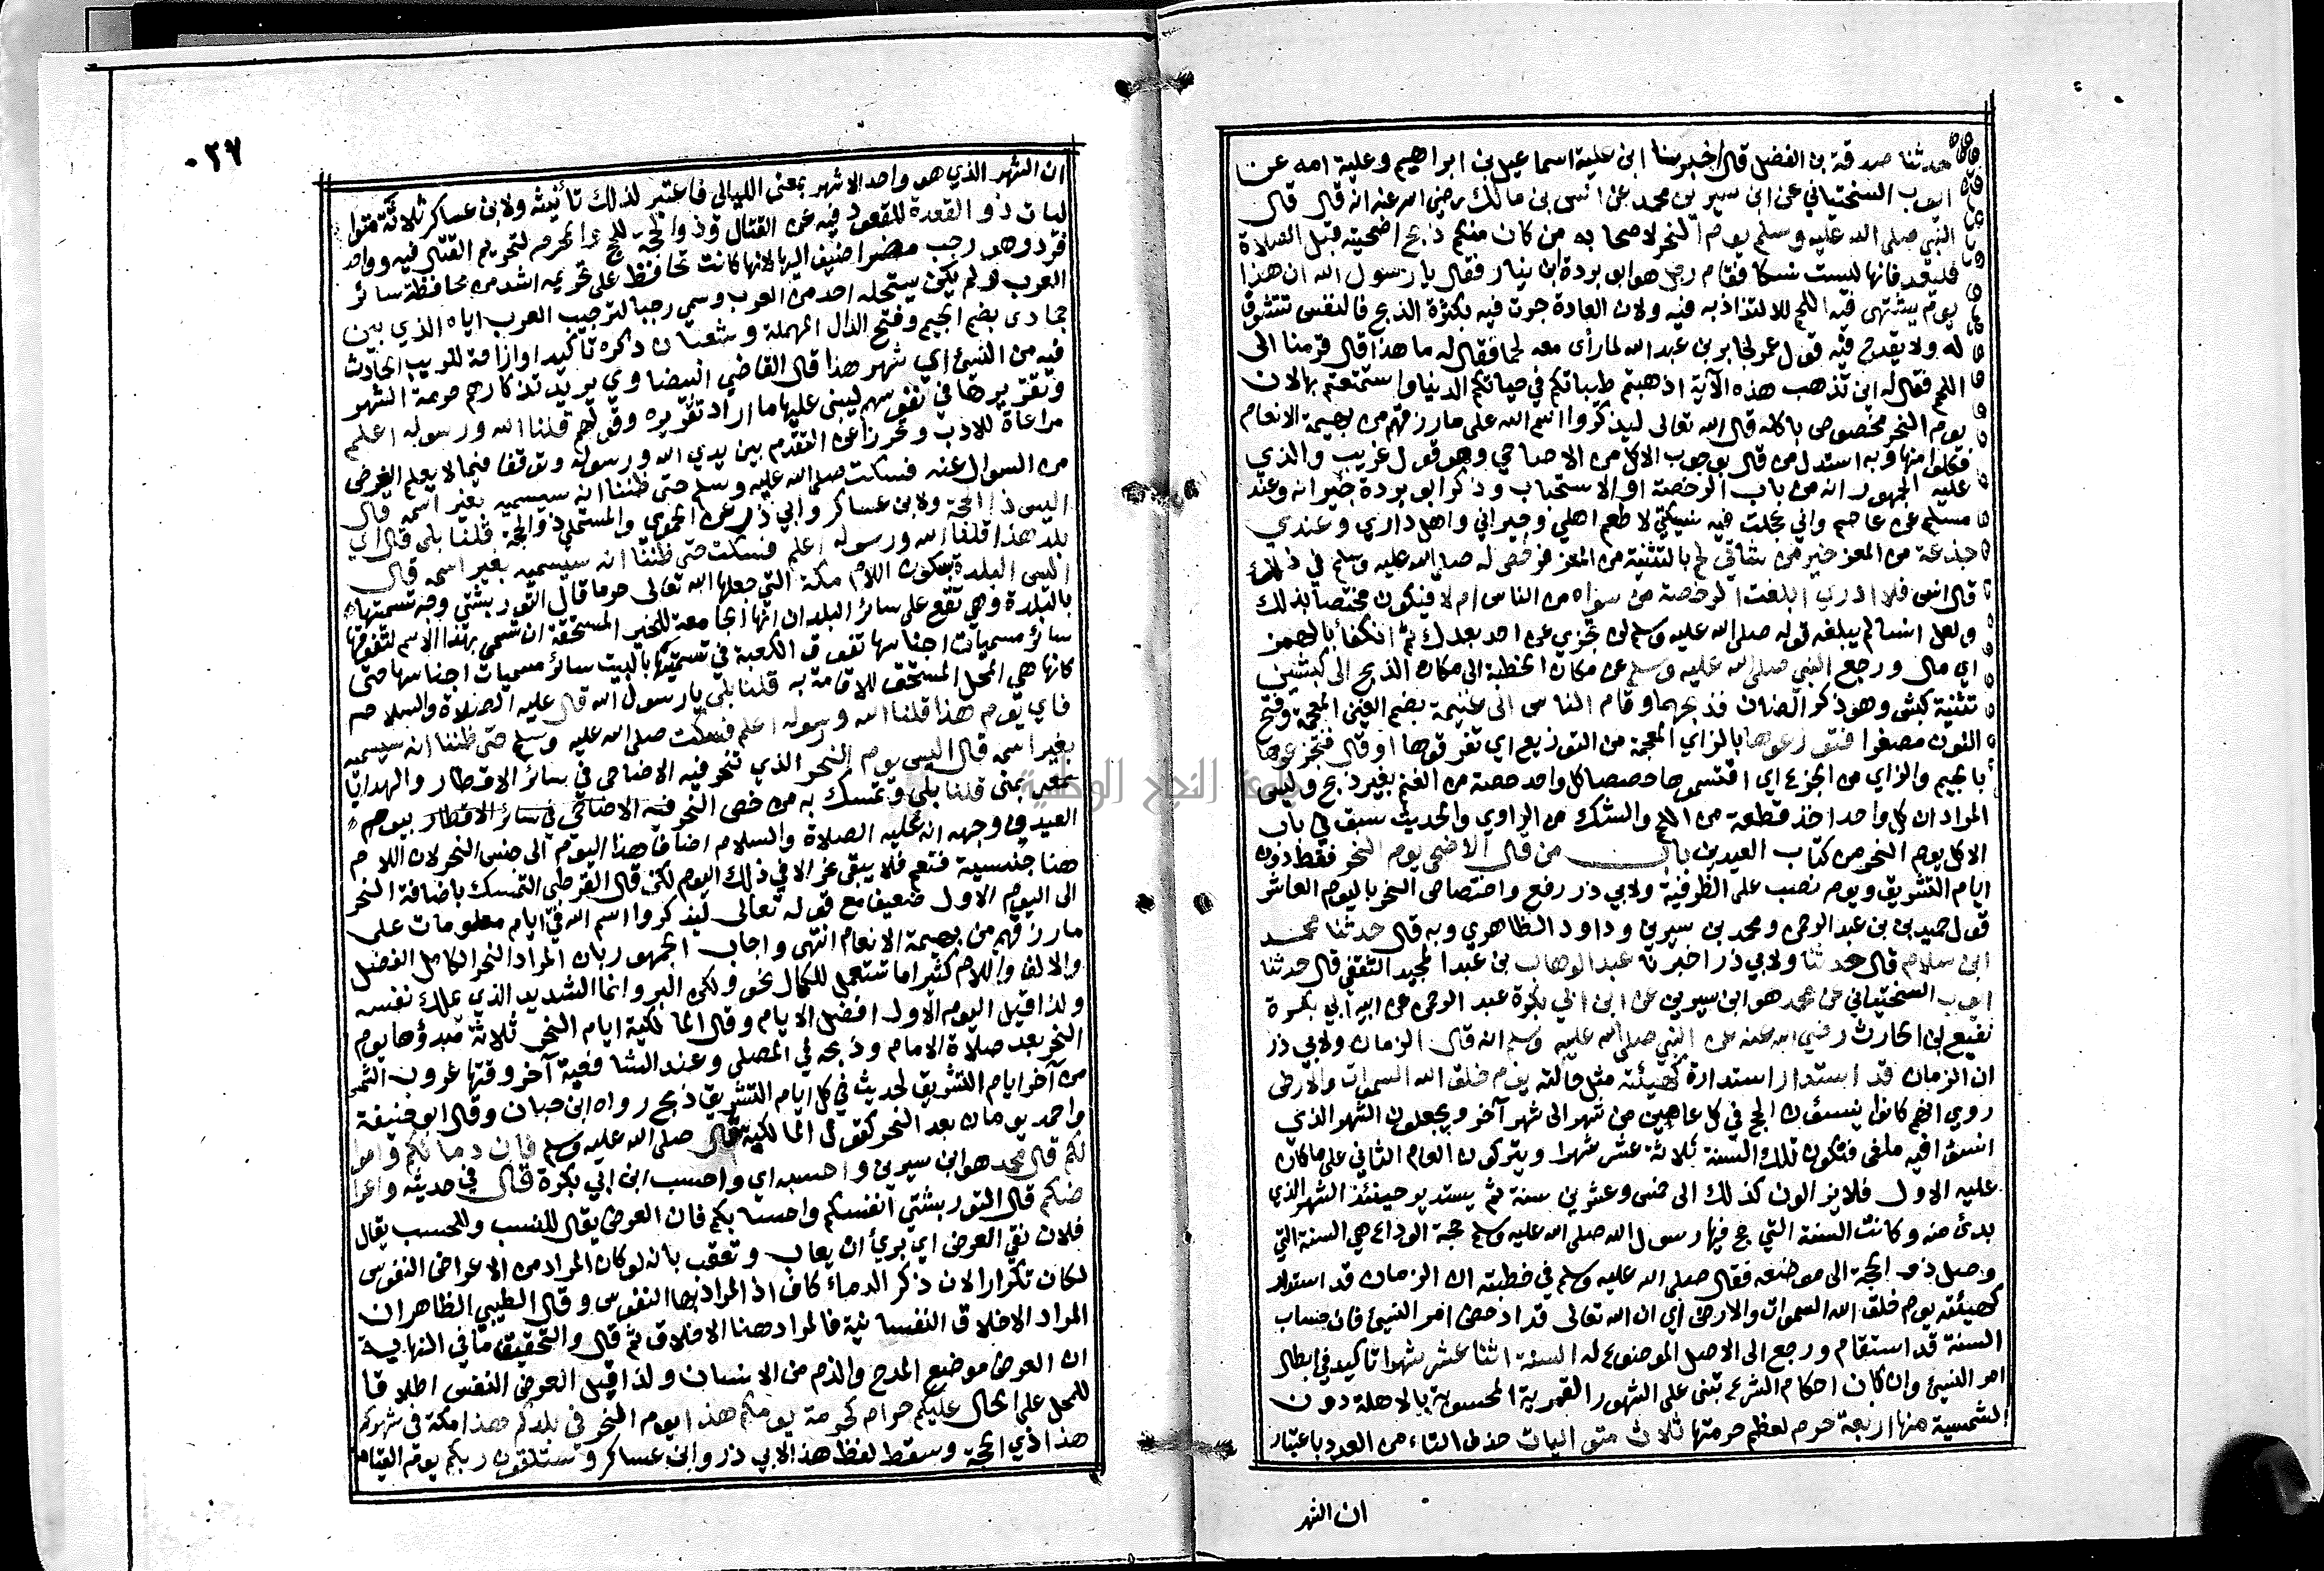 حدثنا صدقة بن الفضل قال اخبرنا ابن علية اسماعيل بن ابراهيم وعلية امه عن
ايوب السختياني عن ابن سيرين محمد عن انس بن مالك رضي الله عنه انه قال قال
النبي صلى الله عليه وسلم يوم النحر لاصحابه من كان منكم ذبح اضحيته قبل الصلاة
فليعد فانها ليست نسكا فقام رجل هو ابو بردة ابن نيار فقال يا رسول الله ان هذا
يوم يشتهى فيه اللحم للالتذاذ به فيه ولان العادة جرت فيه بكثرة الذبح فالنفس تتشوق
له ولا يقدح فيه قول عمر لجابر بن عبد الله لما رأى معه لحما فقال له ما هذا قال قرمنا الى
اللحم فقال له اين تذهب هذه الآية اذهبتم طيباتكم في حياتكم الدنيا واستمتعتم بها لان
يوم النحر مخصوص باكله قال الله تعالى ليذكروا اسم الله على ما رزقهم من بهيمة الانعام
فكلوا منها وبه استدل من قال بوجوب الاكل من الاضاحي وهو قول غريب والذي
عليه الجمهور انه من باب الرخصة او الاستحباب وذكر ابو بردة جيرانه وعند
مسلم عن عاصم واني عجلت فيه نسيكتي لاطعم اهلي وجيراني واهل داري وعندي
جذعة من المعز خير من شاتي لحم بالتثنية من المعز فرخص له صلى الله عليه وسلم في ذلك
قال انس فلا ادري ابلغت الرخصة من سواه من الناس ام لا فيكون مختصا بذلك
ولعل انسا لم يبلغه قوله صلى الله عليه وسلم لن تجزي عن احد بعدك ثم انكفأ بالهمز
اي مال ورجع النبي صلى الله عليه وسلم عن مكان الخطبة الى مكان الذبح الى كبشين
تثنية كبش وهو ذكر الضان فذبحهما وقام الناس الى غنيمة بضم الغين المعجمة وفتح
النون مصغرا فتوزعوها بالزاي المعجمة من التوزيع اي تفرقوها او قال فتجزعوها
بالجيم والزاي من الجزع اي اقتسموها حصصا كل واحد حصة من الغنم بغير ذبح وليس
المراد ان كل واحد اخذ قطعة من اللحم والشك من الراوي والحديث سبق في باب
الاكل يوم النحر من كتاب العيدين باب من قال الاضحى يوم النحر فقط دون
ايام التشريق ويوم نصب على الظرفية ولابي ذر رفع واختصاص النحر باليوم العاشر
قول حميد بن عبد الرحمن ومحمد بن سيرين وداود الظاهري وبه قال حدثنا محمد
ابن سلام قال حدثنا ولابي ذر اخبرنا عبد الوهاب بن عبد المجيد الثقفي قال حدثنا
ايوب السختياني عن محمد هو ابن سيرين عن ابن ابي بكرة عبد الرحمن عن ابيه ابي بكرة
نفيع بن الحارث رضي الله عنه عن النبي صلى الله عليه وسلم انه قال الزمان ولابي ذر
ان الزمان قد استدار استدارة كهيئته مثل حالته يوم خلق الله السموات والارض
روي انهم كانوا ينسؤن الحج في كل عامين من شهر الى شهر آخر ويجعلون الشهر الذي
انسؤا فيه ملغى فتكون تلك السنة ثلاثة عشر شهرا ويتركون العام الثاني على ما كان
عليه الاول فلا يزالون كذلك الى خمس وعشرين سنة ثم يستدير حينئذ الشهر الذي
بدئ منه وكانت السنة التي حج فيها رسول الله صلى الله عليه وسلم حجة الوداع هي السنة التي
وصل ذو الحجة الى موضعه فقال صلى الله عليه وسلم في خطبته ان الزمان قد استدار
كهيئته يوم خلق الله السموات والارض اي ان الله تعالى قد ادحض امر النسئ فان حساب
السنة قد استقام ورجع الى الاصل الموضوع له السنة اثنا عشر شهرا تاكيد في ابطال
امر النسئ وان كان احكام الشرع تبنى على الشهور القمرية المحسوبة بالاهلة دون
الشمسية منها اربعة حرم لعظم حرمتها ثلاث متواليات حذف التاء من العدد باعتبار
ان الشهر
٠٢٦
ان الشهر الذي هو واحد الاشهر بمعنى الليالي فاعتبر لذلك تأنيثه ولابن عساكر ثلاثة متوا
ليات ذو القعدة للقعود فيه عن القتال وذو الحجة للحج والمحرم لتحريم القتال فيه وواحد
فرد وهو رجب مضر اضيف اليها لانها كانت تحافظ على تحريمه اشد من محافظة سائر
العرب ولم يكن يستحله احد من العرب وسمي رجبا لترجيب العرب اياه الذي بين
جمادى بضم الجيم وفتح الدال المهملة وشعبان ذكره تأكيدا وازاحة للريب الحادث
فيه من النسئ اي شهر هذا قال القاضي البيضاوي يريد تذكارهم حرمة الشهر
وتقريرها في نفوسهم ليبني عليها ما اراد تقريره وقولهم قلنا الله ورسوله اعلم
مراعاة للادب وتحرزا عن التقدم بين يدي الله ورسوله وتوقفا فيما لا يعلم الغرض
من السوال عنه فسكت صلى الله عليه وسلم حتى ظننا انه سيسميه بغير اسمه قال
اليس ذا الحجة ولابن عساكر وابي ذر عن الحموي والمستملي ذو الحجة قلنا بلى قال اي
بلد هذا قلنا الله ورسوله اعلم فسكت حتى ظننا انه سيسميه بغير اسمه قال
اليس البلدة بسكون اللام مكة التي جعلها الله تعالى حرما قال التوربشتي وجه تسميتها
بالبلدة وهي تقع على سائر البلدان انها الجامعة للخير المستحقة ان تسمى بهذا الاسم لتفوقها
سائر مسميات اجناسها تفوق الكعبة في تسميتها بالبيت سائر مسميات اجناسها حتى
كانها هي المحل المستحق للاقامة به قلنا بلى يا رسول الله قال عليه الصلاة والسلام
فاي يوم هذا قلنا الله ورسوله اعلم فسكت صلى الله عليه وسلم حتى ظننا انه سيسميه
بغير اسمه قال اليس يوم النحر الذي تنحر فيه الاضاحي في سائر الاقطار والهدايا
بمنى قلنا بلى وتمسك به من خص النحر فيه الاضاحي في سائر الاقطار بيوم
العيد ووجهه انه عليه الصلاة والسلام اضاف هذا اليوم الى جنس النحر لان اللام
هنا جنسية فتعم فلا يبقى نحر الا في ذلك اليوم لكن قال القرطبي التمسك باضافة النحر
الى اليوم الاول ضعيف مع قوله تعالى ليذكروا اسم الله في ايام معلومات على
ما رزقهم من بهيمة الانعام انتهى واجاب الجمهور بان المراد النحر الكامل الفضل
والالف واللام كثيرا ما تستعمل للكمال نحو ولكن البر وانما الشديد الذي يملك نفسه
ولذا قيل اليوم الاول افضل الايام وقال المالكية ايام النحر ثلاثة مبدؤها يوم
النحر بعد صلاة الامام وذبحه في المصلى وعند الشافعية آخر وقتها غروب الشمس
من آخر ايام التشريق لحديث في كل ايام التشريق ذبح رواه ابن حبان وقال ابو حنيفة
واحمد يومان بعد النحر كقول المالكية قال صلى الله عليه وسلم فان دماءكم واموا
لكم قال محمد هو ابن سيرين واحسبه اي واحسب ابن ابي بكرة قال في حديثه واعرا
ضكم قال التوربشتي انفسكم واحسابكم فان العرض يقال للنفس وللحسب يقال
فلان نقي العرض اي بريأ ان يعاب وتعقب بانه لو كان المراد من الاعراض النفوس
لكان تكرارا لان ذكر الدماء كاف اذ المراد بها النفوس وقال الطيبي الظاهر ان
المراد الاخلاق النفسانية فالمراد هنا الاخلاق ثم قال والتحقيق ما في النهاية
ان العرض موضع المدح والذم من الانسان ولذا قيل العرض النفس اطلاقا
للمحل على الحال عليكم حرام كحرمة يومكم هذا يوم النحر في بلدكم هذا مكة في شهركم
هذا ذي الحجة وسقط لفظ هذا لابي ذر وابن عساكر وستلقون ربكم يوم القيامة